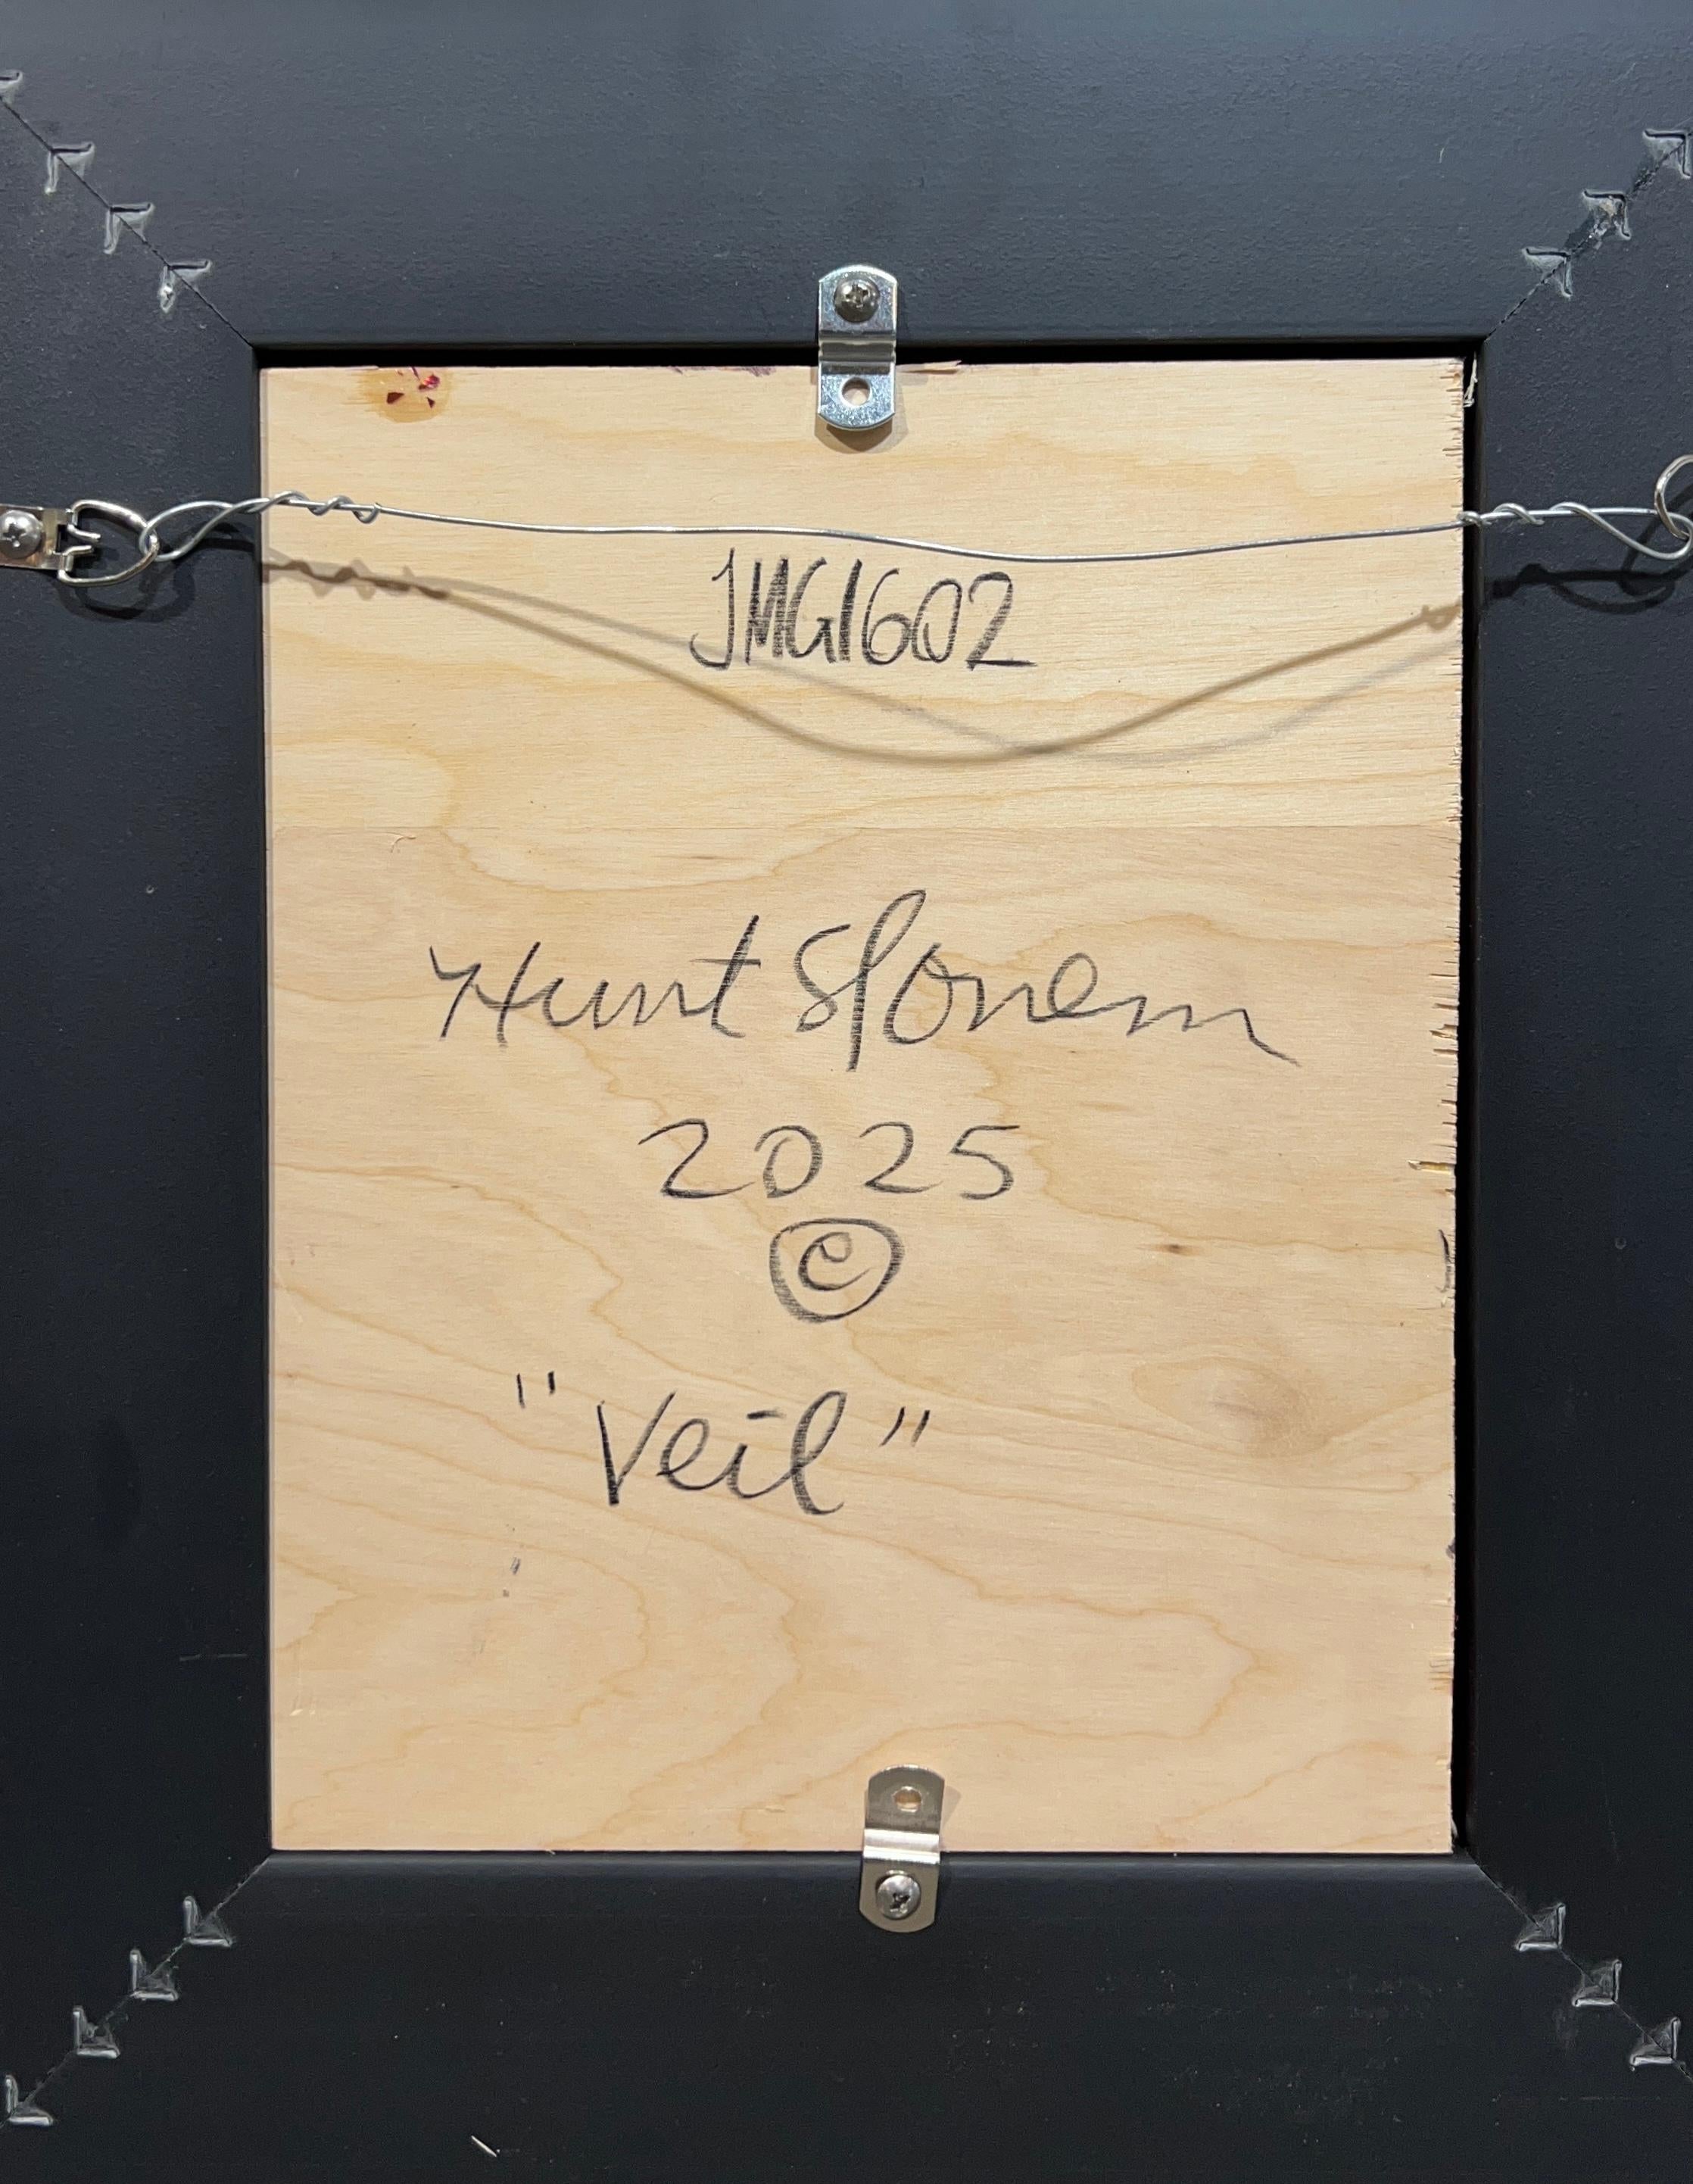 JMG1602
Hunt Slonem
2025
©
"Veil"